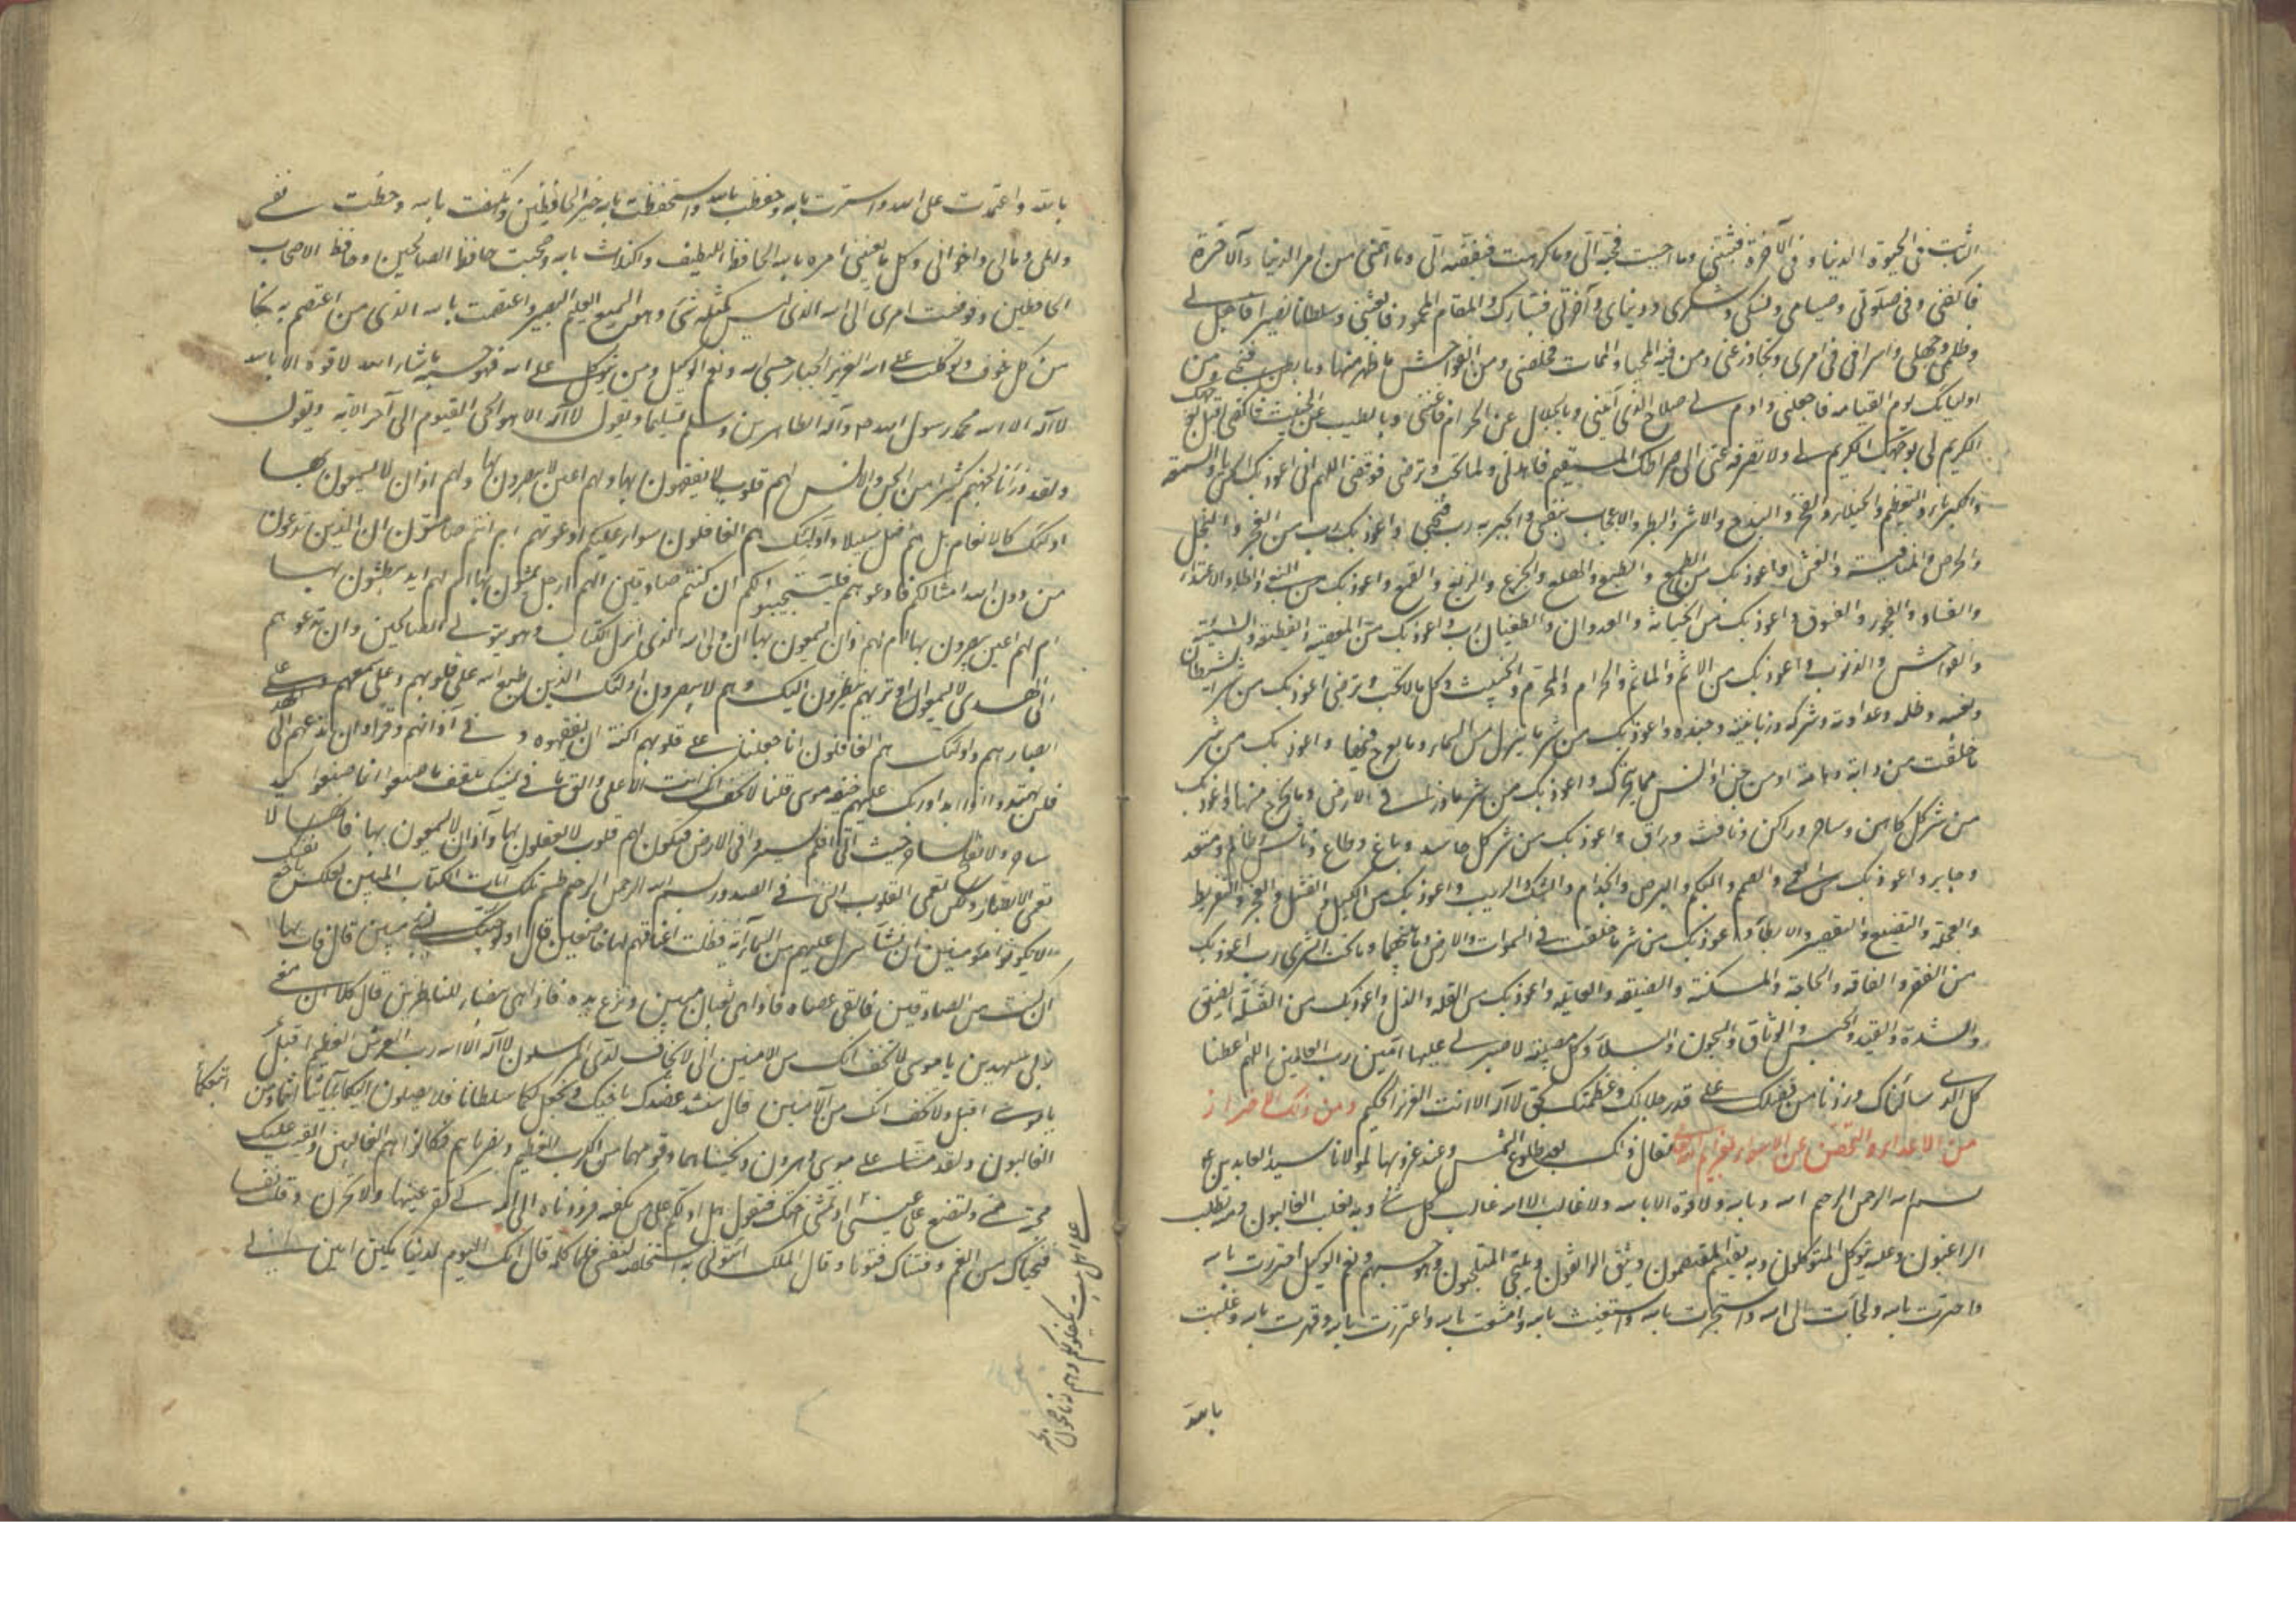 الثابت في الحيوة الدنيا و في الآخرة فثبتني وما احببت فحببه الي وما كرهت فبغضه الي وما اهمني من امر الدنيا والآخرة
فاكفني وفي صلوتي وصيامي ونسكي وشكري ودنياي وآخرتي فبارك والمقام المحمود فابعثني وسلطانا نصيرا فاجعل لي
وظلمي وجهلي واسرافي في امري فتجاوز عني ومن فتنة المحيا والممات فخلصني ومن الفواحش ما ظهر منها وما بطن فنجني ومن
اوليائك يوم القيامه فاجعلني وادم لي صلاح الذي آتيتني وبالحلال عن الحرام فاغنني وبالطيب عن الخبيث فاكفني اقبل بوجهك
الكريم الي بوجهك الكريم لي ولا تصرفه عني الى صراطك المستقيم فاهدني ولما تحب وترضى فوفقني اللهم اني اعوذ بك من الريا والسمعه
والكبرياء والتعظم والخيلاء والفخر والبذخ والاشر والبطر والاعجاب بنفسي والجبريه رب فنجني واعوذ بك رب من الفجر والبخل
والحرص والمنافسة والغش واعوذ بك من الطمع والطبع والهلع والجزع والزيغ والقمع واعوذ بك من البغي والظلم والاعتداء
والفساد والفجور والفسوق واعوذ بك من الخيانة والعدوان والطغيان رب واعوذ بك من المعصية والقطيعة والسيئة
والفواحش والذنوب واعوذ بك من الاثم والمأثم والحرام والمحرم والخبيث وكل ما لا تحب وترضى اعوذ بك من شر الشيطان
وبغيه وظلمه وعداوته وشركه وزبانيته وجنده واعوذ بك من شر ما ينزل من السماء وما يعرج فيها واعوذ بك من شر
ما خلقت من دابة وهامة او من جن او انس مما يتحرك واعوذ بك من شر ما ذرأ في الارض وما يخرج منها واعوذ بك
من شر كل كاهن وساحر وراكن ونافث وراق واعوذ بك من شر كل حاسد وباغ وطاغ ونافس وظالم ومتعد
وجاير واعوذ بك من العمى والصمم والبكم والبرص والجذام والشك والريب واعوذ بك من الكسل والفشل والعجز والتفريط
والعجلة والتضييع والتقصير والابطاء واعوذ بك من شر ما خلقت في السموات والارض وما بينهما وما تحت الثرى رب اعوذ بك
من الفقر والفاقه والحاجة والمسكنة والضيقه والعائله واعوذ بك من القله والذل واعوذ بك من الضيق
والشدة والقيد والحبس والوثاق والسجون والبلاء وكل مصيبة لا صبر لي عليها آمين رب العالمين اللهم اعطنا
كل الذي سألناك وزدنا من فضلك على قدر جلالك وعظمتك بحق لا اله الا انت العزيز الحكيم ومن ذلك الاحتراز
من الاعداء والتحصن عن الاسواء فقال ذلك بعد طلوع الشمس وعند غروبها لمولانا سيد العابدين ع
بسم الله الرحمن الرحيم الله وبالله ولا قوة الا بالله ولا غالب الا الله غالب كل شيء وبه يغلب الغالبون ومنه يطلب
الراغبون وعليه يتوكل المتوكلون وبه يعتصم المعتصمون ويثق الواثقون ويلتجي الملتجئون وهو حسبهم ونعم الوكيل احترزت بالله
واحترست بالله ولجأت الى الله واستجرت بالله واستغثت بالله وامتنعت بالله واعتززت بالله وقهرت بالله وغلبت
بالله
بالله واعتمدت على الله واستترت بالله وحفظت بالله واستحفظت بالله خير الحافظين وتكهفت بالله وحطت نفسي
واهلي ومالي واخواني وكل ما يعنيني امره بالله الحافظ اللطيف واكتلات بالله وصحبت حافظ الصالحين وحافظ الاصحاب
الحافظين وفوضت امري الى الله الذي ليس كمثله شيء وهو السميع العليم البصير واعتصمت بالله الذي من اعتصم به نجا
من كل خوف وتوكلت على الله العزيز الجبار حسبي الله ونعم الوكيل ومن يتوكل على الله فهو حسبه ما شاء الله لا قوة الا بالله
لا اله الا الله محمد رسول الله ص وآله الطاهرين وسلم تسليما وتقول لا اله الا هو الحي القيوم الى آخر الآية وتقول
ولقد ذرأنا لجهنم كثيرا من الجن والانس لهم قلوب لا يفقهون بها ولهم اعين لا يبصرون بها ولهم اذان لا يسمعون بها
اولئك كالانعام بل هم اضل سبيلا واولئك هم الغافلون سواء عليكم ادعوتموهم ام انتم صامتون ان الذين تدعون
من دون الله امثالكم فادعوهم فليستجيبوا لكم ان كنتم صادقين الهم ارجل يمشون بها ام لهم ايد يبطشون بها
ام لهم اعين يبصرون بها ام لهم اذان يسمعون بها ان وليي الله الذي نزل الكتاب وهو يتولى الصالحين وان تدعوهم
الى الهدى لا يسمعوا وتراهم ينظرون اليك وهم لا يبصرون اولئك الذين طبع الله على قلوبهم وعلى سمعهم وعلى
ابصارهم واولئك هم الغافلون انا جعلنا على قلوبهم اكنة ان يفقهوه وفي آذانهم وقرا وان تدعهم الى الهدى
فلن يهتدوا اذا ابدا وربك عليهم خيفة موسى قلنا لا تخف انك انت الاعلى والق ما في يمينك تلقف ما صنعوا انما صنعوا كيد
ساحر ولا يفلح الساحر حيث اتى افلم يسيروا في الارض فتكون لهم قلوب لا يعقلون بها وآذان لا يسمعون بها فانها لا
تعمى الابصار ولكن تعمى القلوب التي في الصدور بسم الله الرحمن الرحيم طسم تلك آيات الكتاب المبين لعلك باخع نفسك
الا يكونوا مؤمنين ان نشأ ننزل عليهم من السماء آية فظلت اعناقهم لها خاضعين قال اولو جئتك بشيء مبين قال فات بها
ان كنت من الصادقين فالقى عصاه فاذا هي ثعبان مبين ونزع يده فاذا هي بيضاء للناظرين قال كلا ان معي
ربي سيهدين يا موسى لا تخف انك من الامنين اني لا يخاف لدي المرسلون لا اله الا الله رب العرش العظيم اقبل
يا موسى اقبل ولا تخف انك من الآمنين قال سنشد عضدك باخيك ونجعل لكما سلطانا فلا يصلون اليكما بآياتنا انتما ومن
اتبعكما
الغالبون ولقد مننا على موسى وهرون ونجيناهما وقومهما من الكرب العظيم ونصرناهم فكانوا هم الغالبين والقيت عليك
محبة مني ولتصنع على عيني اذ تمشي اختك فتقول هل ادلكم على من يكفله فرددناه الى امه كي تقر عينها ولا تحزن وقتلت نفسا
فنجيناك من الغم وفتناك فتونا وقال الملك ائتوني به استخلصه لنفسي فلما كلمه قال انك اليوم لدينا مكين امين
على اهل بيت يكفلونه لكم وهم له ناصحون